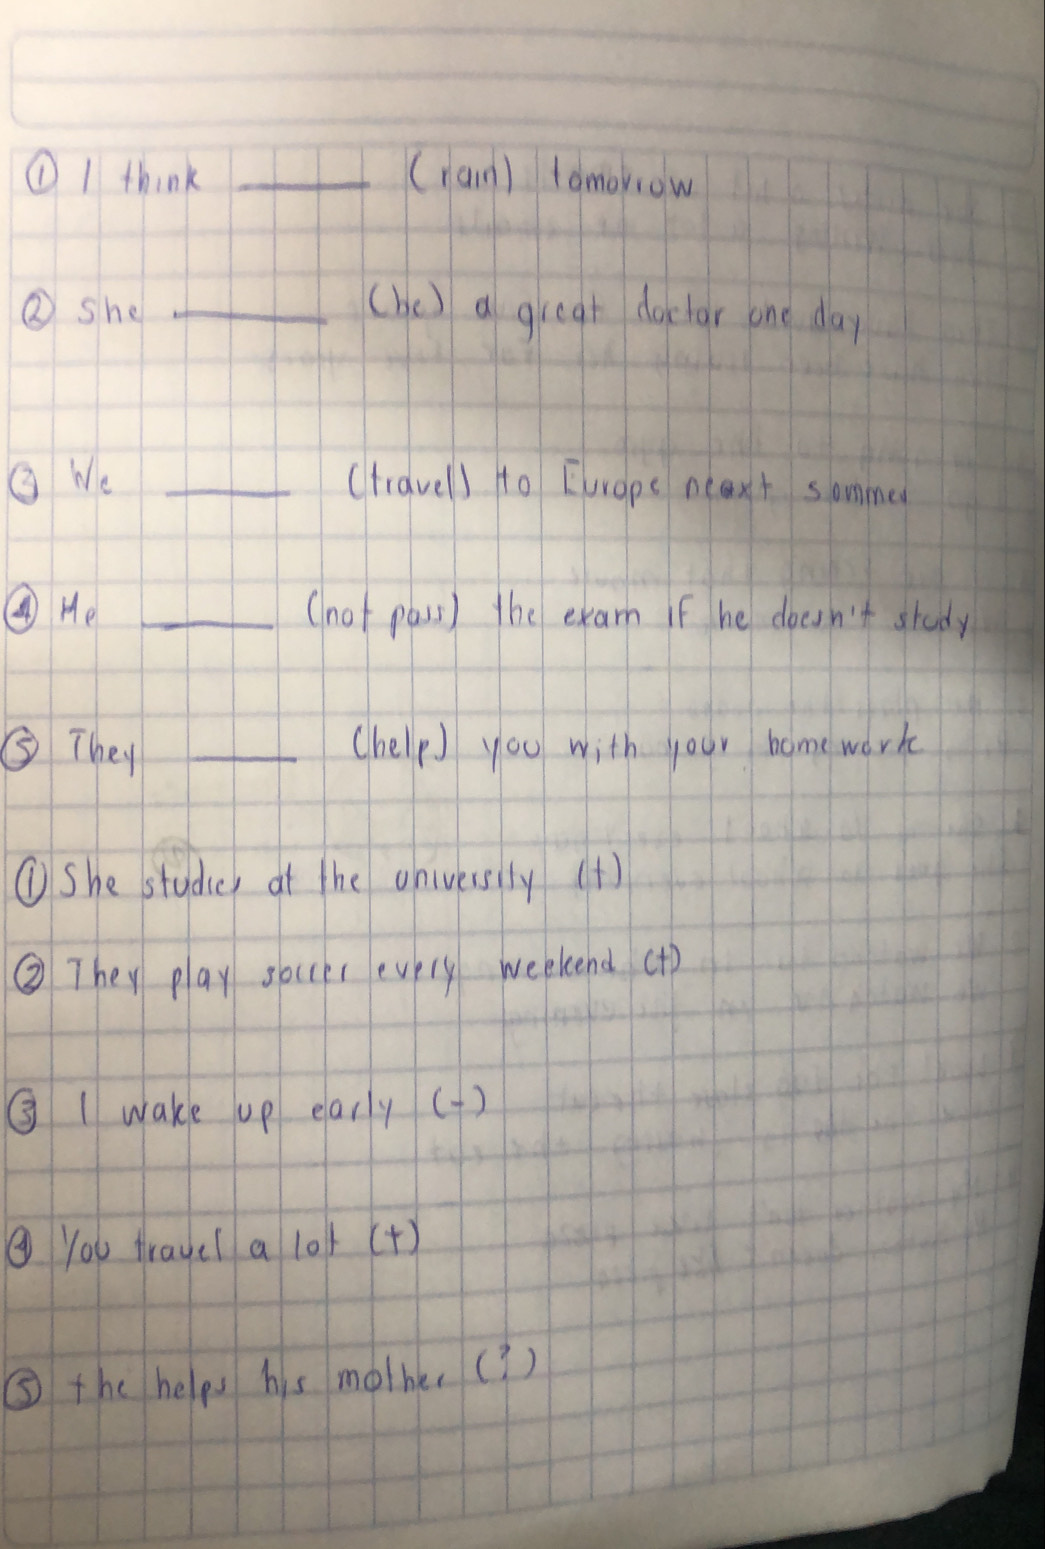 ① I think ______ (rain) tomorrow
② She ______ (be) a great doctor one day
③ We ______ (travel) to Europe neaxt sommer
④ He ______ (not pass) the exam if he doesn't study
⑤ They ______ (help) you with your homework
① She studies at the university (+)
② They play soccer every weekend (+)
③ I wake up early (-)
④ You travel a lot (+)
⑤ the helps his mother (?)